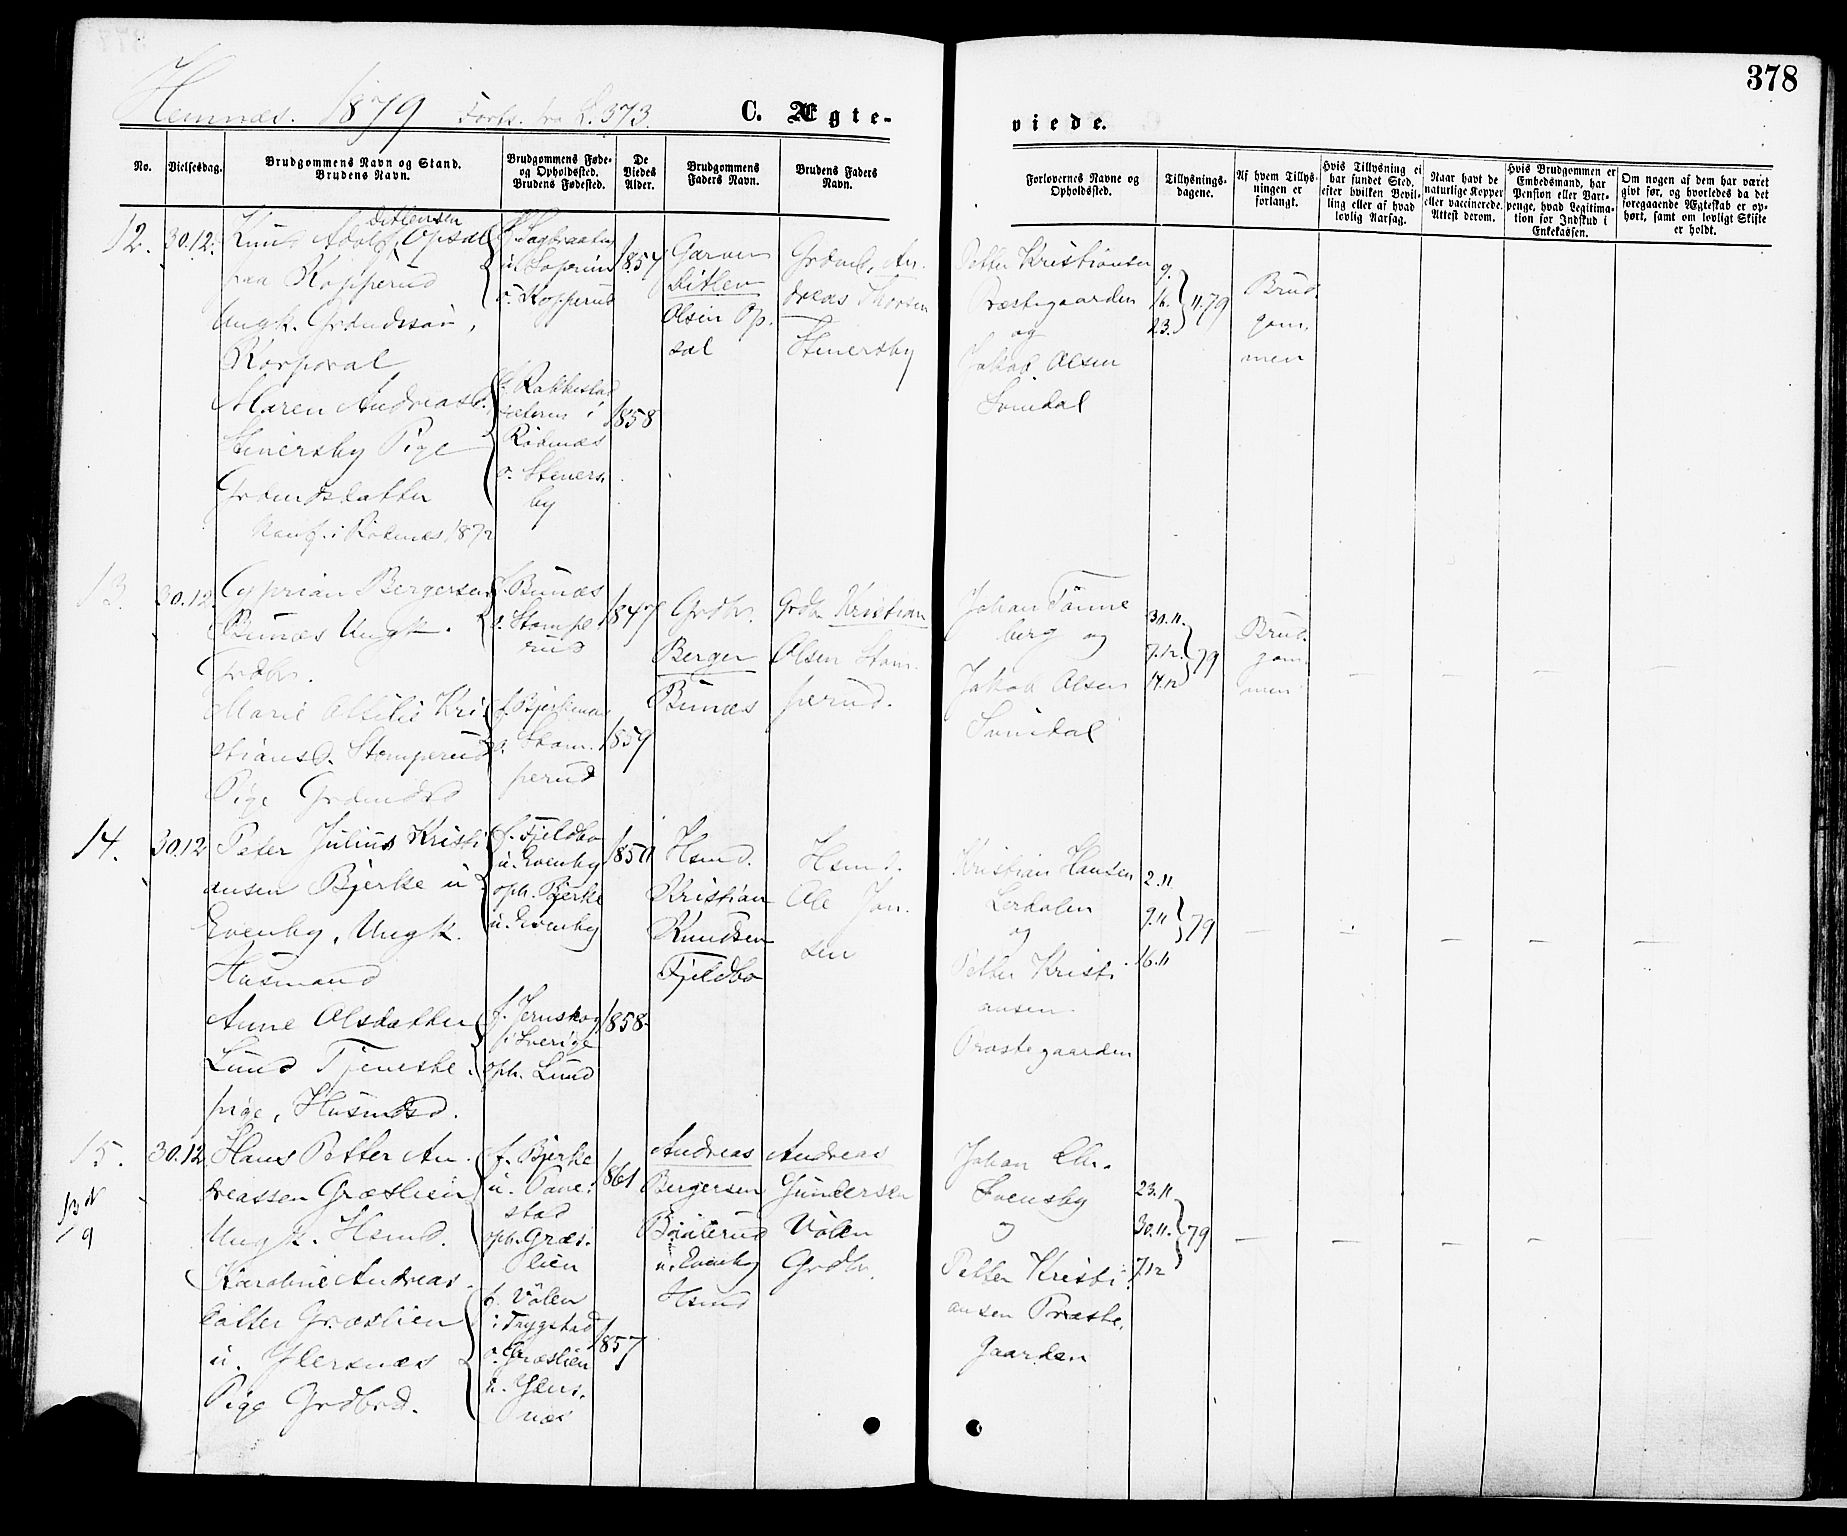 378
Hemnæs. 1879 Forts. fra S. 373.
C. Ægte-
viede.
No.
Vielsesdag.
Brudgommens Navn og Stand.
Brudens Navn.
Brudgommens Føde-
og Opholdssted.
Brudens Fødested.
De
Viedes
Alder.
Brudgommens
Faders Navn.
Brudens Faders
Navn.
Forlovernes Navne og
Opholdssted.
Tillysnings-
dagene.
Af hvem Tillys-
ningen er
forlangt.
Hvis Tillysning ei
har fundet Sted,
efter hvilken Bevil-
ling eller af hvad
lovlig Aarsag.
Naar havt de
naturlige Kopper
eller vaccinerede.
Attest derom.
Hvis Brudgommen er
Embedsmand, har
Pension eller Vart-
penge, hvad Legitima-
tion for Indskud i
Enkekassen.
Om nogen af dem har været
givt før, og hvorledes da det
foregaaende Ægteskab er op-
hørt, samt om lovligt Skifte
er holdt.
12.
30.12.
Ditlevsen
Adolf Opsal
fra Kopperud
Ungk.
Korporal
Maren Andreasd.
Stenersby Pige
Grdmdsdatter
i Rødenes 1872
o. Kopperud
1857
f. Rakkestad
i
Rødenæs
o. Steners-
by
1858
Garver
Ditlev
Olsen Op-
sal
Grdmd. An-
dreas Thorsen
Stenersby
Petter Kristiansen
Præstegaarden
og
Jakob Olsen
9.
16. 11.79
23.
Brud-
gom-
men
13.
30.12.
Cyprian Bergersen
Bunæs Ungk.
Grdbr.
Marie Kri-
stiansd. Stomperud
Pige Grdmdsd
f. Bunæs
o. Stompe-
rud
1847
f. Bjerkenæs
o. Stom-
perud
1859
Grdbr.
Berger
Bunæs
Grdbr. Kristian
Olsen Stom-
perud.
Johan Tønne
berg og
Jakob Olsen
30.11.
7.12. 79
14.12
Brud-
gom-
men
14.
30.12
Peter Julius Kristi
ansen Bjerke u
Evenby, Ungk.
Husmand
Anne Olsdatter
Lund Tjeneste-
pige, Husmdsd.
f. Fjeldbo
u. Evenby
oph. Bjerke
u. Evenby
1850
f. Jernskog
i Sverige
oph. Lund
1858
Hsmd.
Kristian
Knudsen
Fjeldbo
Hsmd.
Ole Jan-
sen
Kristian Hansen
Lerdalen
og
Petter Kristi
ansen
Præstegaarden
2.11
9.11 79
16.11
15.
30.12
Hans Petter An-
dreassen Græslien
Ungk. Hsmd.
Karoline Andreas-
datter Græslien
u.
Pige Grdbrd.
f. Bjerke
u.
stad
oph. Græs-
lien
1861
f. Vølen
i Trygstad
o. Græslien
u.
næs
1857
Andreas
Bergersen
u. Evenby
Hsmd
Andreas
Gundersen
Vølen
Grdbr.
Johan
Svensby
og
Petter Kristi
ansen Præste-
gaarden
23.11
30.11. 79
7.12